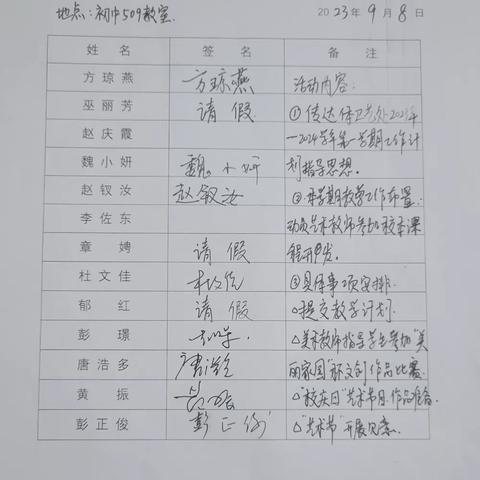 地点：初中509教室.
2023年9月8日
姓 名 签 名 备 注
方琼燕 方琼燕 活动内容：
巫丽芳 请 假 ①传达体卫艺处2023年
赵庆霞 —2024学年第一学期工作计
魏小妍 魏小妍 划指导思想。
赵钗汝 赵钗汝 ②本学期教学工作布置.
李佐东 动员艺术教师参加校本课
章 娉 请 假 程开发。
杜文佳 杜文佳 ③具体事项安排.
郁 红 请 假 △提交教学计划.
彭 璟 △美术教师指导学生参加"美
唐浩多 唐浩多 丽家园"杯文创作品比赛.
黄 振 黄振 △"校庆日"艺术节目、作品准备.
彭正俊 彭正俊 △"艺术节"开展